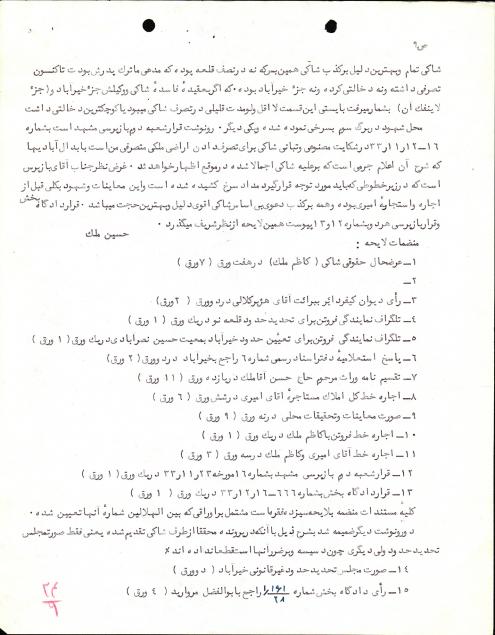 ص ۹
شاکی تمام وبهترین دلیل برکذب شاکی همین بسرکه نه درتصف قلعه بوده که مدعی ماترك پدرش بود تاکنسون
تصرفی داشته ونه دخالتی کرده ونه جزء خیرآباد بوده۰ که اگربعقیدهٔ فاسدهٔ شاکی ووکیلش جزء خیرآباد و(جزء
لاینفك آن) بشمارمیرفت بایستی این قسمت لااقل ولومدت قلیلی درتصرف شاکی میبود یاکوچکترین دخالتی داشت
محل شهود دربرگ سیم بسرخی نموده شده ویکی دیگر۰ رونوشت قرارشعبه دوم بازپرسی مشهد است بشماره
۱۶–۱۲–۱ر۱ر۳۳ درشکایت مصنوعی وتبانی شاکی برای تصرف دادن اراضی ملکی متصرفی من است باید ال آبادیها
که شرح آن اعلام جرمی است که برعلیه شاکی اجمالا شده و درموقع اظهارخواهد شد۰ غرض نظرجناب آقای بازپرس
است که درزیرخطوطی که باید مورد توجه قرارگیرد مداد سرخ کشیده شده است واین معاینات وشهود بکلی قبل از
اجاره واستجارهٔ امیری بوده و همه برکذب دعوی بی اساس شاکی اقوی دلیل وبهترین حجت میباشد۰ قراردادگاه بخش
وقراربازپرسی هردوبشماره ۱۲و۱۳پیوست همین لایحه ازنظرشریف میگذرد۰
حسین ملك
منضمات لایحه :
۱ــ عرضحال حقوقی شاکی (کاظم ملك) درهفت ورقی (۷ورقی)
۲ــ
۳ــ رأی دیوان کیفردائر ببرائت آقای هژبرکلالی دردو ورقی (۲ورقی)
۴ــ تلگراف نمایندگی فروتن برای تحدیدحدود قلعه نو دریك ورقی (۱ ورقی)
۵ــ تلگراف نمایندگی فروتن برای تعیین حدود خیرآباد بمعیت حسین نصرآبادی دریك ورقی (۱ ورقی)
۶ــ پاسخ استعلامیهٔ دفتراسناد رسمی شماره۶ راجع بخیرآباد دردوورقی (۲ ورقی)
۷ــ تقسیم نامه وراث مرحوم حاج حسین آقاملك دریازده ورقی (۱۱ ورقی)
۸ــ اجاره خط کل املاك مستاجرهٔ آقای امیری درشش ورقی (۶ ورقی)
۹ــ صورت معاینات وتحقیقات محلی درنه ورقی (۹ ورقی)
۱۰ــ اجاره خط فروتن باکاظم ملك دریك ورقی (۱ ورقی)
۱۱ــ اجاره خط آقای امیری وکاظم ملك درسه ورقی (۳ ورقی)
۱۲ــ قرارشعبه دوم بازپرسی مشهد بشماره۱۶مورخه۲۳ر۱۱ر۳۳ دریك ورقی (۱ ورقی)
۱۳ــ قراردادگاه بخش بشماره۶۶۶–۱۶ر۱۲ر۳۳ دریك ورقی (۱ ورقی)
کلیهٔ مستندات منضمه بلایحه سیزده فقره است مشتمل براوراقی که بین الهلالین شمارهٔ آنها تعیین شده۰
دورونوشت دیگرضمیمه شد بشرح ذیل باآنکه درپرونده محققا ازطرف شاکی تقدیم شده یعنی فقط صورتمجلس
تحدیدحدود ولی دیگری چون دسیسه وبرضررآنهااست قطعا نداده اند×
۱۴ــ صورت مجلس تحدیدحدود غیرقانونی خیرآباد (دوورق)
۱۵ــ رأی دادگاه بخش شماره ۱۶۱/۲۸ راجع بابوالفضل مروارید (۴ ورقی)
۲۴/۹